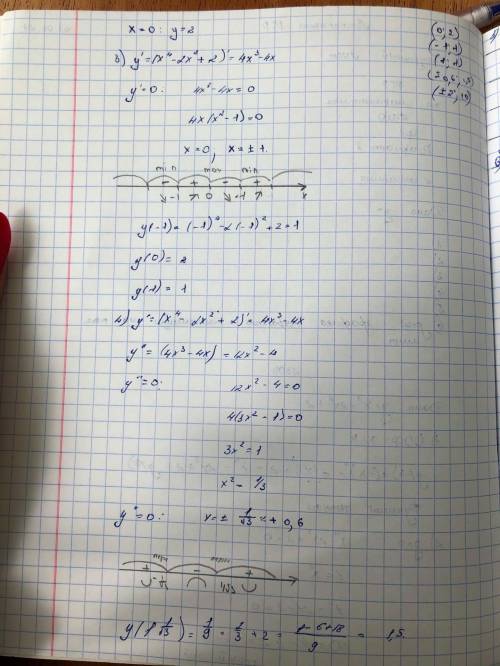 x=0: y=2
(0; 2)
(-1; 1)
(1; 1)
3) y' = (x⁴ - 2x² + 2)' = 4x³ - 4x
y'=0: 4x³ - 4x = 0
4x(x² - 1) = 0
x=0, x=±1.
min max min
- + - +
-1 0 1 x
y(-1) = (-1)⁴ - 2(-1)² + 2 = 1
y(0) = 2
y(1) = 1
4) y' = (x⁴ - 2x² + 2)' = 4x³ - 4x
y'' = (4x³ - 4x)' = 12x² - 4
y''=0: 12x² - 4 = 0
4(3x² - 1) = 0
3x² = 1
x² = 1/3
y''=0: x = ± 1/√3 ≈ ± 0,6
+ - +
y(± 1/√3) = 1/9 - 2/3 + 2 = (1-6+18)/9 = 1,5.